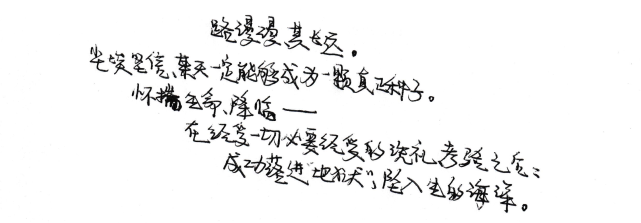 路漫漫其长远。
尘埃坚信、某天一定能够成为一颗真正种子。
怀揣生命、降临——
在经受一切必要经受的洗礼考验之后；
成功落进“地狱”，坠入生的海深。